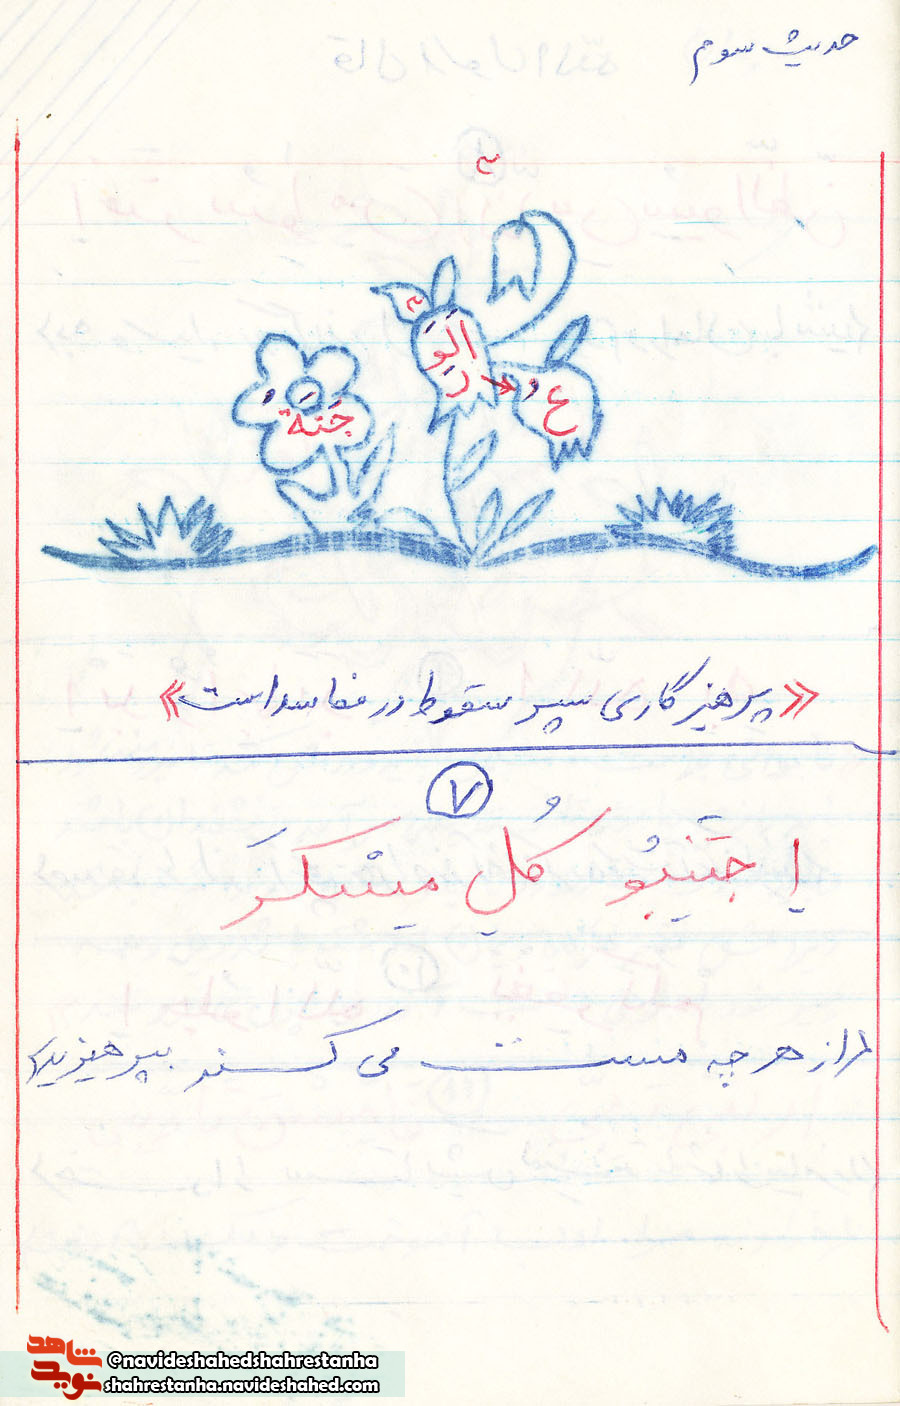 حدیث سوم
۳
اَلوَ
رَ
عُ
جَنة
«پرهیزگاری سپر سقوط در مفاسد است»
۷
اِجتَنِبُو کُلِ مِسْکرَ
از هر چه مست می کند بپرهیزید
شاهد
نوید
©navideshahedshahrestanha
shahrestanha.navideshahed.com